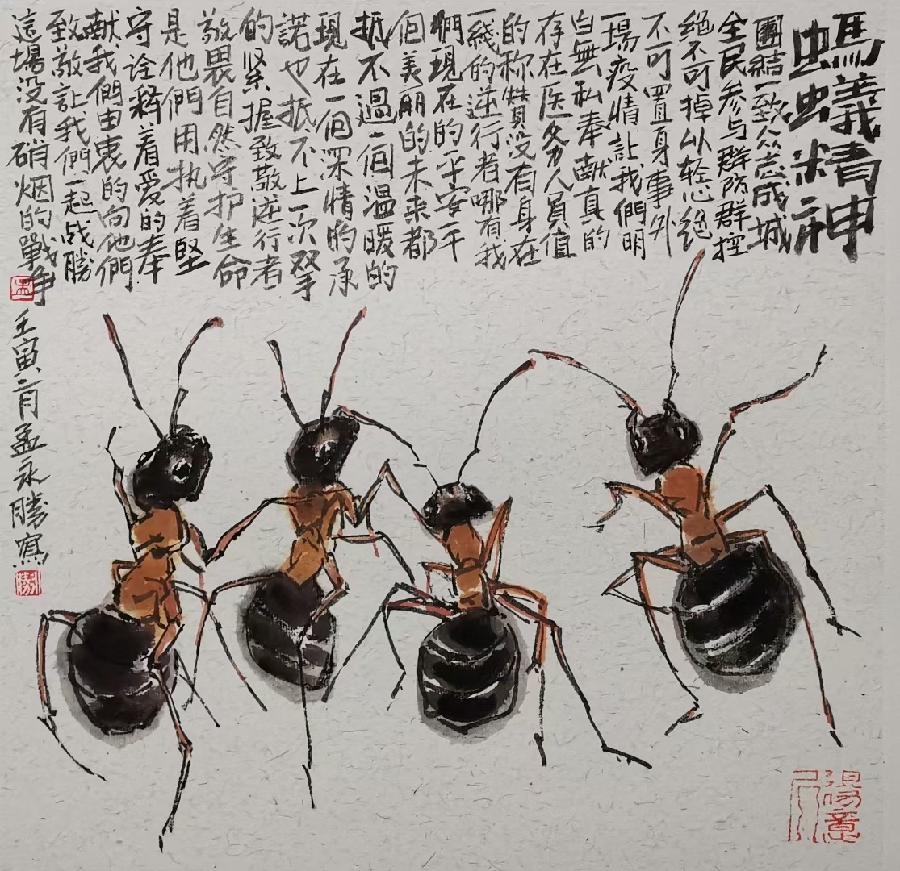 螞蟻精神
團結一致众志成城
全民参与群防群控
絕不可掉以轻心絕
不可置身事外
一場疫情让我們明
白無私奉献真的
存在医务人員值
的称贊没有身在
一綫的逆行者哪有我
們現在的平安千
個美丽的未来都
抵不過一個温暖的
現在一個深情的承
諾也抵不上一次双手
的緊握致敬逆行者
敬畏自然守护生命
是他們用执着堅
守诠释着愛的奉
献我們由衷的向他們
致敬让我們一起战勝
這場没有硝烟的戰争
壬寅二月孟永勝寫